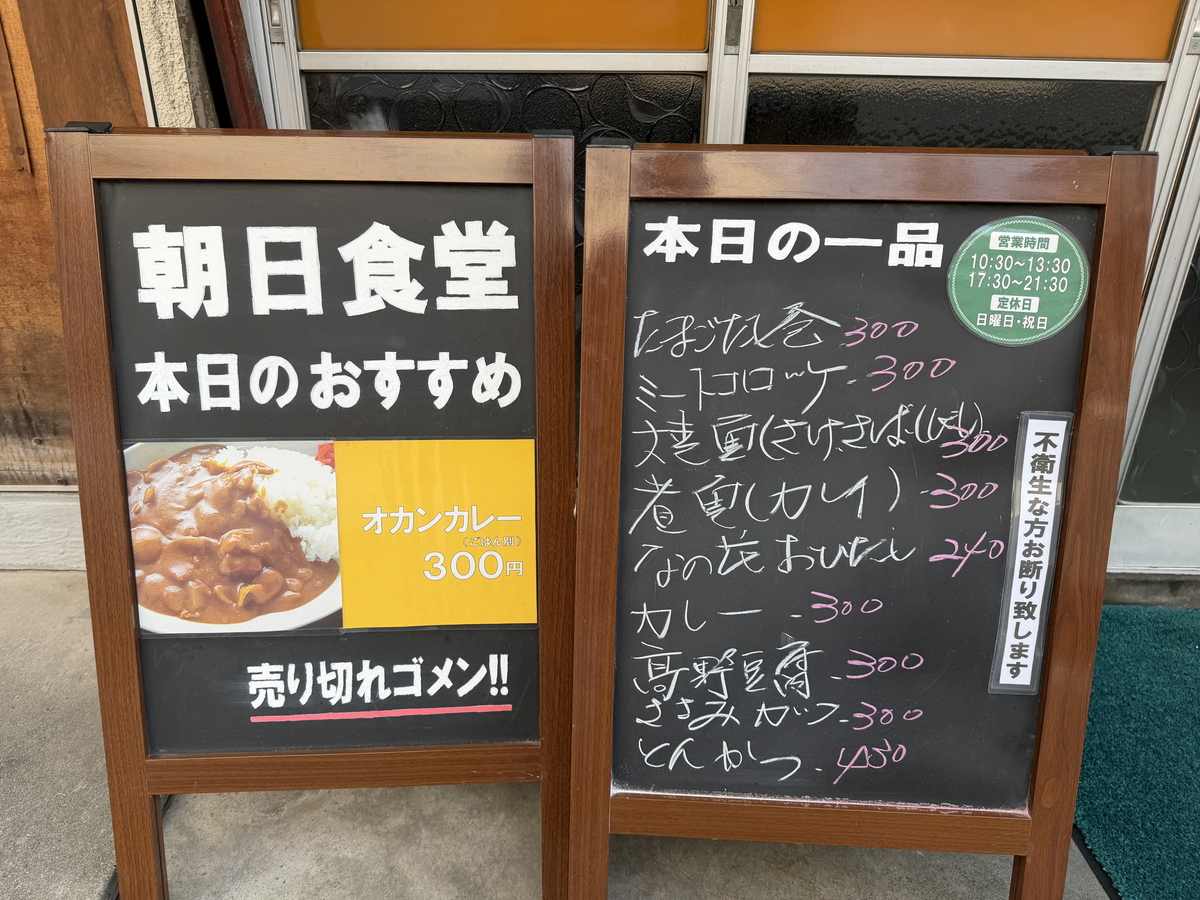 朝日食堂
本日のおすすめ
オカンカレー
(ごはん別)
300円
売り切れゴメン!!
本日の一品
営業時間
10:30~13:30
17:30~21:30
定休日
日曜日・祝日
たまごたれ巻 300
ミートコロッケ - 300
焼魚(さけ,さば,ししゃも) 300
煮魚(カレイ) - 300
なの花おひたし 240
カレー - 300
高野豆腐 - 300
ささみカツ - 300
とんかつ - 450
不衛生な方お断り致します